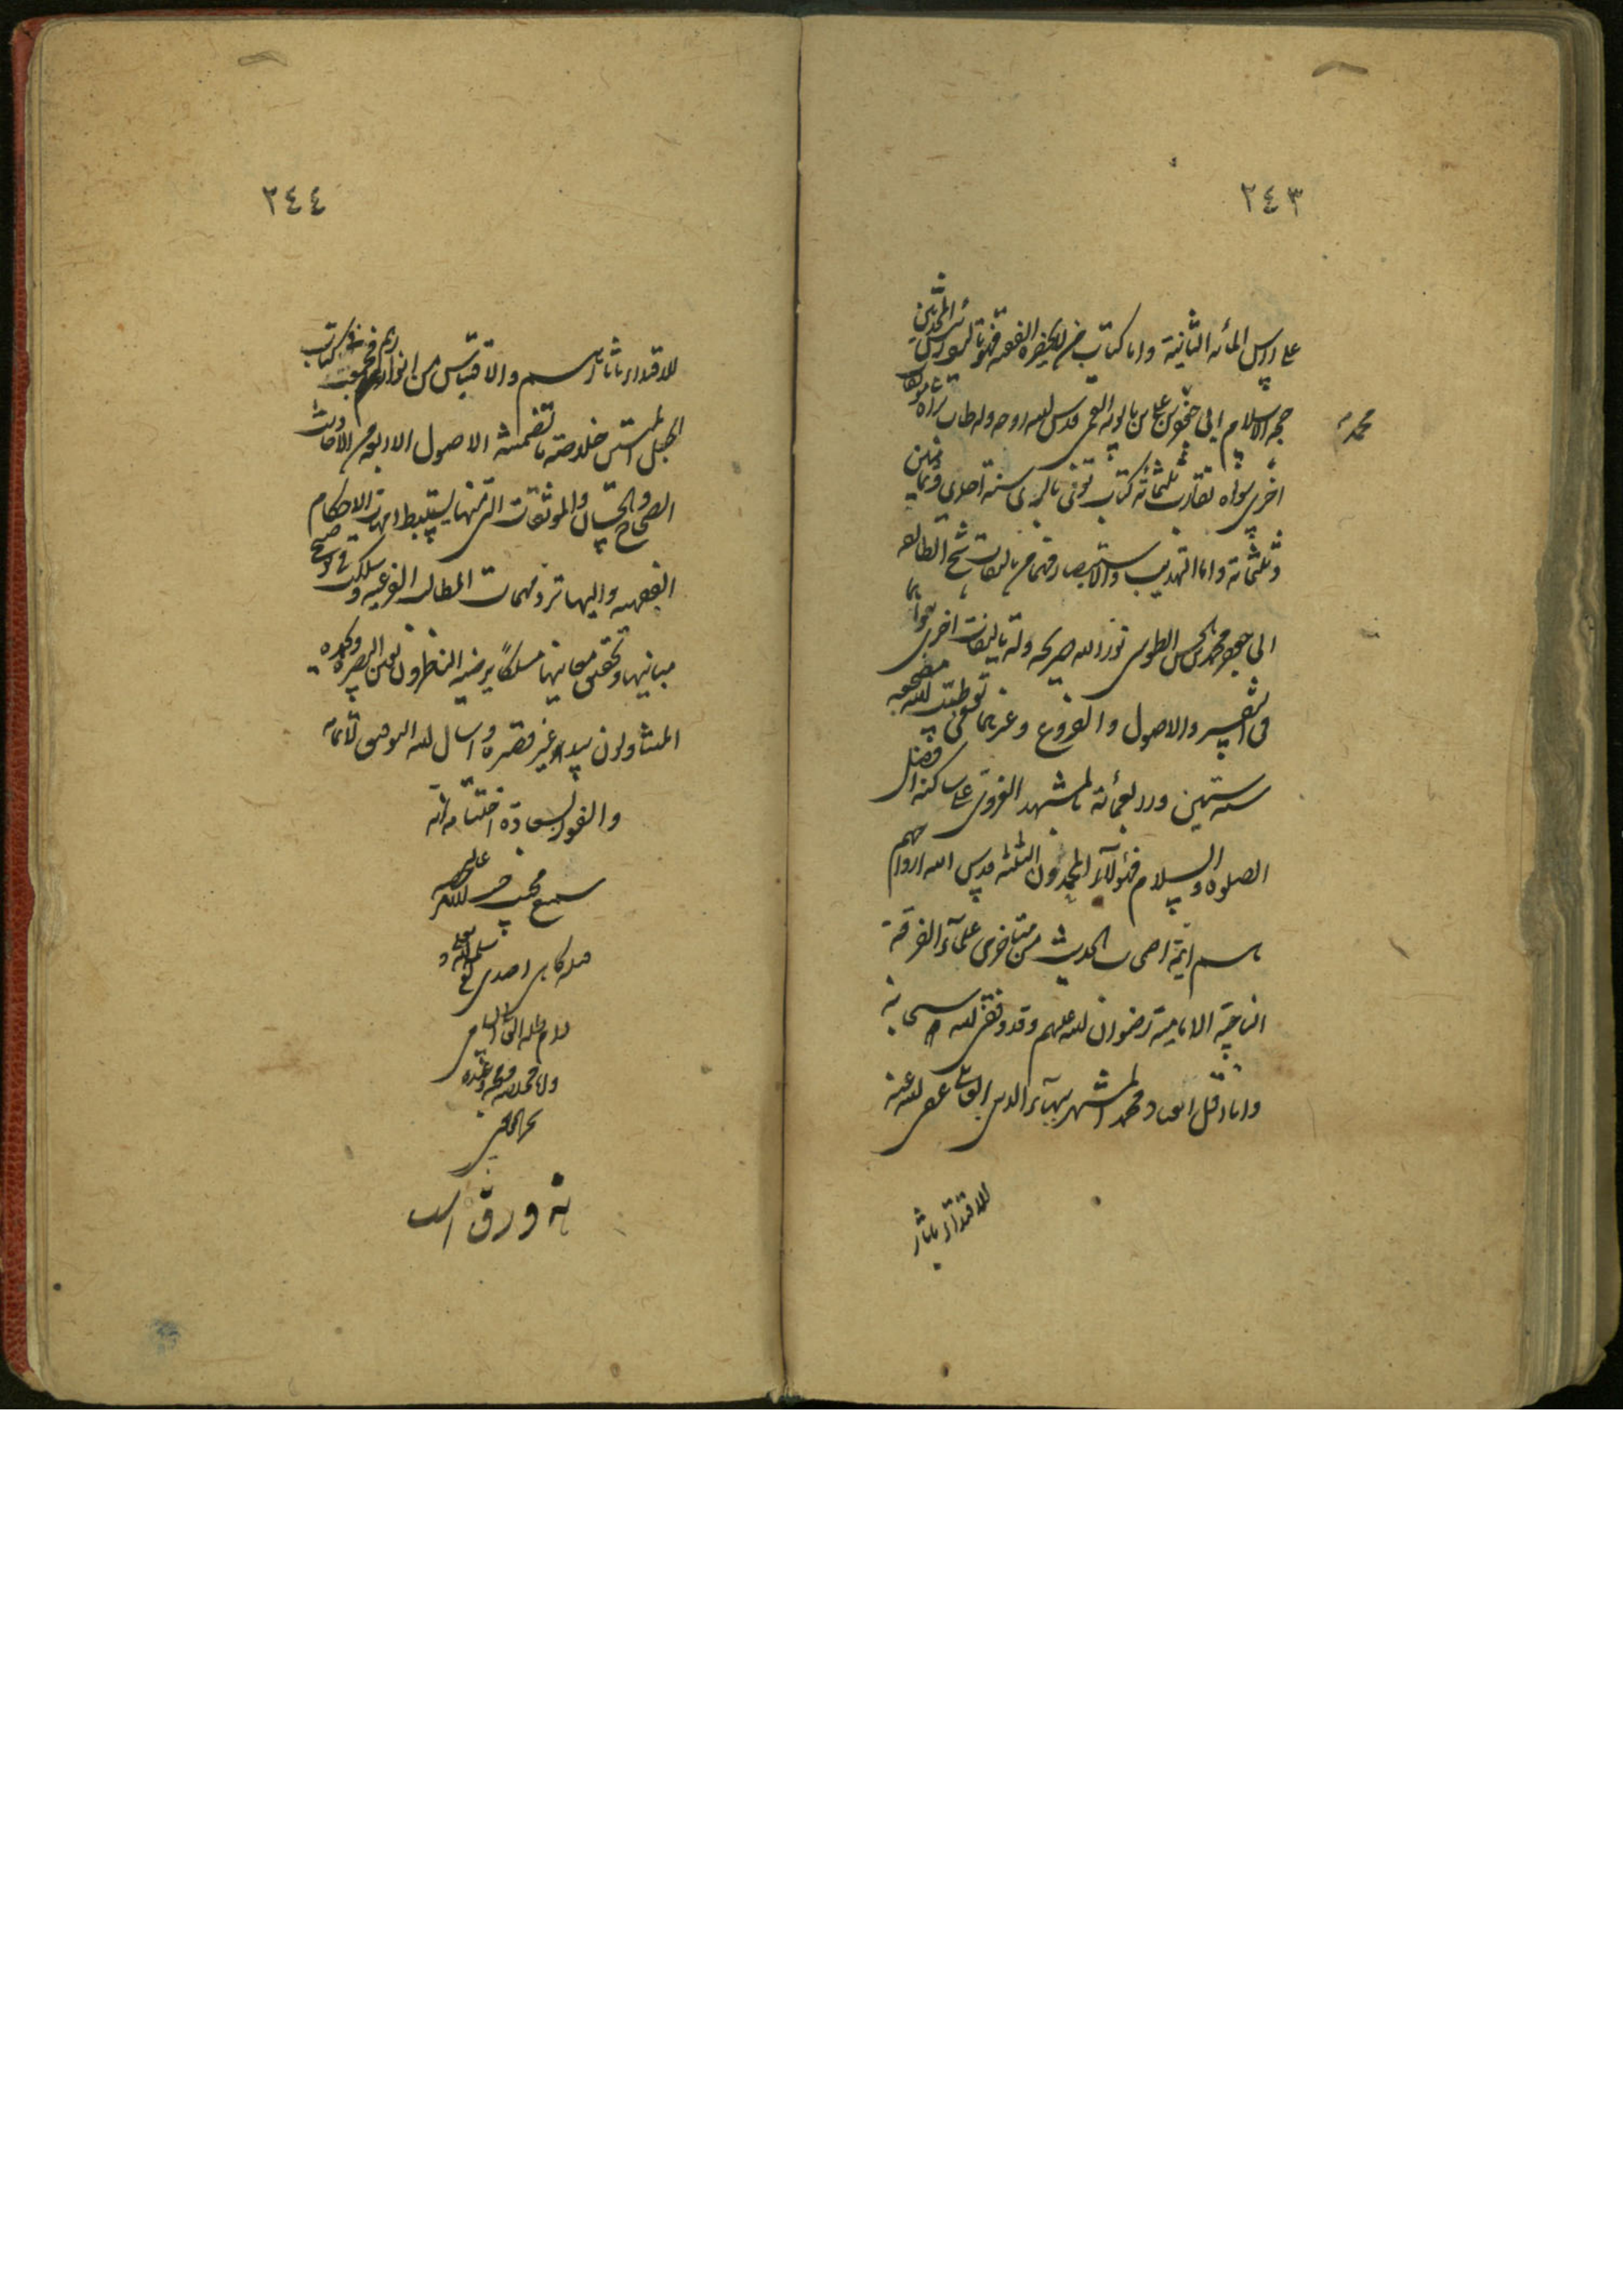 ٢٤٣
علی راس المائه الثانیة واما کتاب من لا یحضره الفقیه فهو تالیف رئیس المحدثین
حجة الاسلام ابی جعفر محمد بن علی بن بابویه القمی قدس الله روحه وله طاب ثراه مؤلفات
اخری سواه تقارب ثلثمائة کتاب توفی بالری سنة احدی وثمانین
وثلثمائة واما التهذیب والاستبصار فهما من تالیفات شیخ الطائفه
ابی جعفر محمد بن الحسن الطوسی نور الله ضریحه وله تالیفات اخری سواهما
فی التفسیر والاصول والفروع وغیرهما توفی طیب الله مضجعه
سنه ستین واربعمائة بالمشهد الغروی علی ساکنه افضل
الصلوة والسلام فهؤلاء المحمدون الثلثه قدس الله ارواحهم
هم ائمة اصحاب الحدیث من متاخری علماء الفرقة
الناجیة الامامیة رضوان الله علیهم وقد وفقنی الله سبحانه
وانا اقل العباد محمد المشتهر ببهاء الدین العاملی عفی الله عنه
للاقتداء بآثار
٢٤٤
للاقتداء بآثارهم والاقتباس من انوارهم فجمعت فی کتاب
الحبل المتین خلاصة ما تضمنته الاصول الاربعه من الاحادیث
الصحاح والحسان والموثقات التی منها یستنبط امهات الاحکام
الفقهیه والیها ترد مهمات المطالب الفرعیه وسلکت فی توضیح
مبانیها وتحقیق معانیها مسلکا یرضیه الناظرون بعین البصیرة ویحمده
المتناولون بید غیر قصیرة واسال الله التوفیق لاتمامه
والفوز بسعادة اختتامه انه
سمیع مجیب
نه ورق است